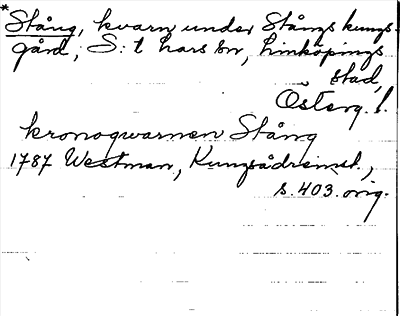 * Stång, kvarn under Stångs kungs-
gård, S:t Lars sn, Linköpings
stad,
Österg. l.
kronoqwarnen Stång
1787 Westman, Kungsådreinst.,
s. 403. orig.